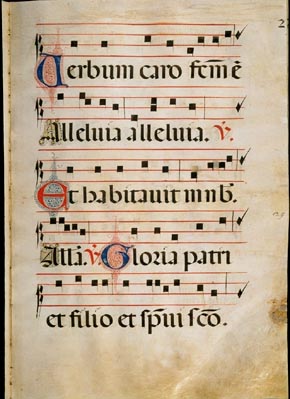 2
Verbum caro fcm̄ ē
Alleluia alleluia. ℣.
Et habitauit in nb̄.
Alla᷉. ℣. Gloria patri
et filio et sp̄ui scō.